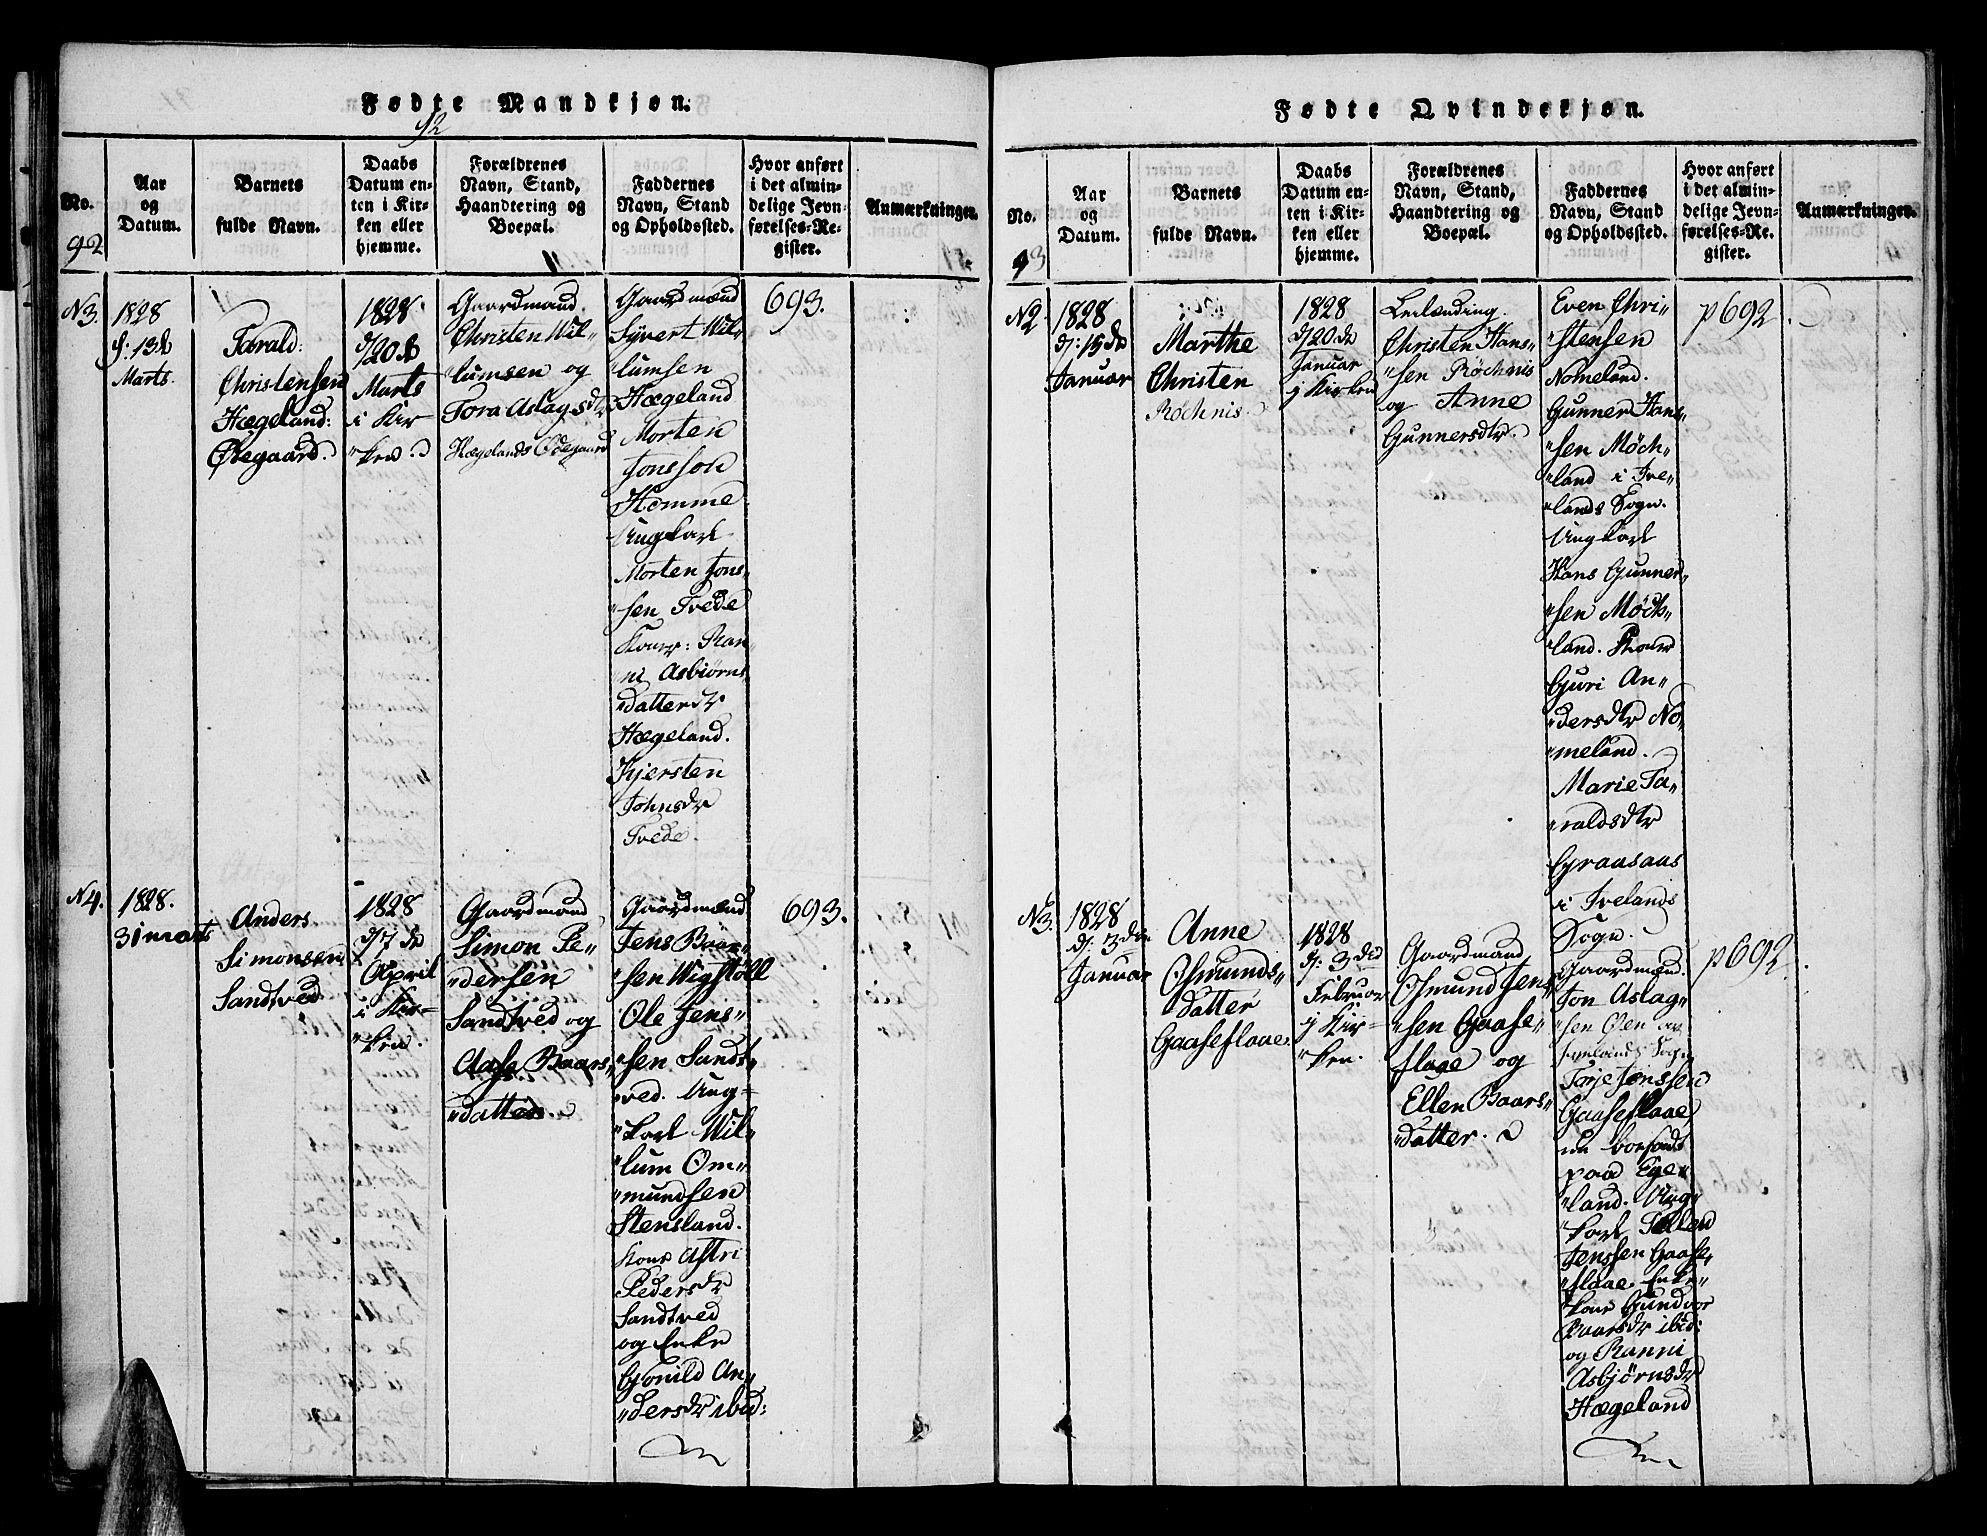 Fødte Mandkjøn.
92
No.
92
Aar
og
Datum.
Barnets
fulde Navn.
Daabs
Datum en-
ten i Kir-
ken eller
hjemme.
Forældrenes
Navn, Stand,
Haandtering og
Boepæl.
Faddernes
Navn, Stand
og Opholdssted.
Hvor anført
i det almin-
delige Jevn-
førelses-Re-
gister.
Anmærkninger.
N3.
1828
d: 13de
Marts.
Tarald
Christensen
Hægeland:
Ødegaard.
1828
d/20de
Marts
i Kir-
"ken.
Gaardmand
Christen Wil-
lumsen og
Tora Aslagsdtr
Hægelands Ødegaard
Gaardmænd
Syvert Wil-
lumsen
Hægeland
Morten
Jonsson
Homme
Ungkarl
Morten Jons-
"sen Tvede
Koner: Ran-
"ni Asbiørns
"datter
Hægeland.
Kjersten
Johnsdr
Tvede.
693.
N4.
1828.
31 marts
Anders
Simonsen
Sandtved
1828
d/7de
April
i Kir-
"ken.
Gaardmand
Simon Pe-
"dersen
Sandtved og
Aase Baars-
"datter.
Gaardmænd
Jens Baar-
"sen Wigstøll
Ole Jens-
"sen Sandt-
ved. Ung-
"karl Wil-
"lum Om-
"mundsen
Stensland.
Kone Astri
Pedersdr
Sandtved
og Enke
Gonild An-
"dersdr ibid:
693.
Fødte Qvindekjøn.
No.
93
Aar
og
Datum.
Barnets
fulde Navn.
Daabs
Datum en-
ten i Kir-
ken eller
hjemme.
Forældrenes
Navn, Stand,
Haandtering og
Boepæl.
Faddernes
Navn, Stand
og Opholdssted.
Hvor anført
i det almin-
delige Jevn-
førelses-Re-
gister.
Anmærkninger.
N2.
1828
d: 15de
Januar
Marthe
Christen
Røchnis.
1828
d/20de
Januar
i Kirken
Leilænding.
Christen Hans-
"sen Røchnis
og Anne
Gunnersdtr.
Even Chri-
"stensen
Nomeland.
Gunner Hans-
"sen Møch-
"land i Ive-
"lands Sogn.
Ungkarl
Hans Gunner-
"sen Møch-
"land. Koner
Guri An-
"dersdtr No-
"meland.
Marie Ta-
"raldsdtr
Graasaas
i Ivelands
Sogn.
p692.
N3.
1828
d: 3die
Januar
Anne
Osmunds-
datter
Gaaseflaae.
1828
d: 3die
Februar
i Kir-
"ken.
Gaardmand
Osmund Jens-
"sen Gaase-
flaae og
Ellen Baars-
"datter.
Gaardmænd.
Jon Aslag-
"sen Øen av
Ivelands Sogn
Torje Jenssen
Gaaseflaae
nu boesadt
paa Ege-
"land. Ung-
"karl Tellev
Jenssen Gaase-
"flaae. Enke-
"kone Gundvor
Baarsdr ibid:
og Ranni
Asbjørnsdr
Hægeland
p692.